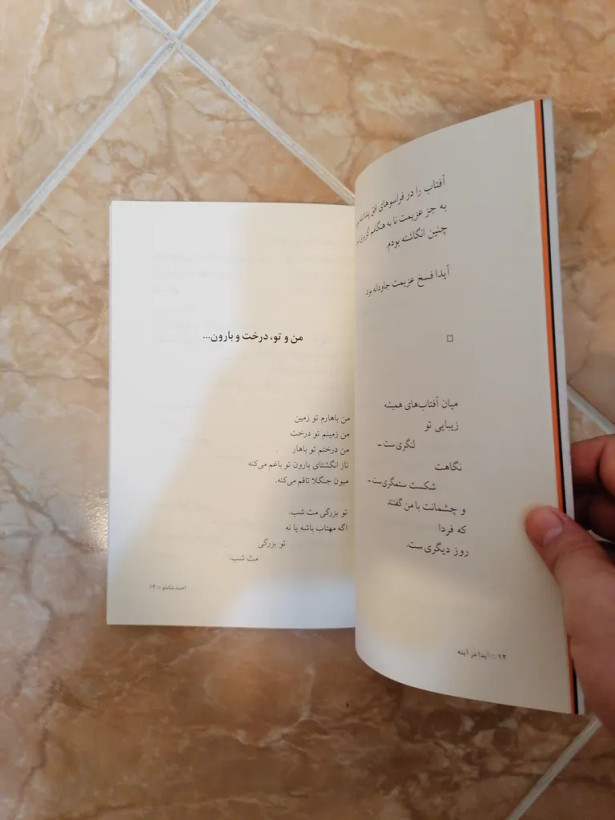 آفتاب را در فراسوهای افق پنداشته
به جز عزیمت نا به هنگامم گریزی
چنین انگاشته بودم
آیدا فسخ عزیمت جاودانه بود
میان آفتاب‌های همیشه
زیبایی تو
لنگری‌ست ـ
نگاهت
شکست ستمگری‌ست ـ
و چشمانت با من گفتند
که فردا
روز دیگری‌ست.
۱۲ :: آیدا در آینه
من و تو، درخت و بارون...
من باهارم تو زمین
من زمینم تو درخت
من درختم تو باهار
ناز انگشتای بارون تو باغم می‌کنه
میون جنگلا تاقم می‌کنه.
تو بزرگی مث شب.
اگه مهتاب باشه یا نه
تو بزرگی
مث شب.
احمد شاملو :: ۱۳